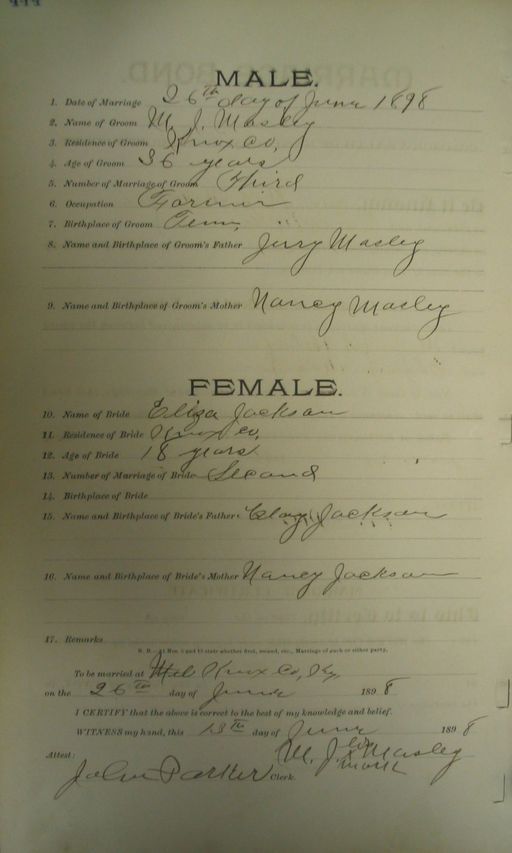 MALE.
1. Date of Marriage 26th day of June 1898
2. Name of Groom M. J. Mosley
3. Residence of Groom Knox Co,
4. Age of Groom 36 years
5. Number of Marriage of Groom Third
6. Occupation Farmer
7. Birthplace of Groom Tenn,
8. Name and Birthplace of Groom's Father Jerry Mosley
9. Name and Birthplace of Groom's Mother Nancy Mosley
FEMALE.
10. Name of Bride Eliza Jackson
11. Residence of Bride Knox Co,
12. Age of Bride 18 years
13. Number of Marriage of Bride Second
14. Birthplace of Bride
15. Name and Birthplace of Bride's Father Clay Jackson
16. Name and Birthplace of Bride's Mother Nancy Jackson
17. Remarks
N. B.—At Nos. 5 and 13 state whether first, second, etc., Marriage of each or either party.
To be married at Knox Co, Ky,
on the 26th day of June 1898
I CERTIFY that the above is correct to the best of my knowledge and belief.
WITNESS my hand, this 13th day of June 1898
M. J. his x mark Mosley
Attest: John Parker Clerk.